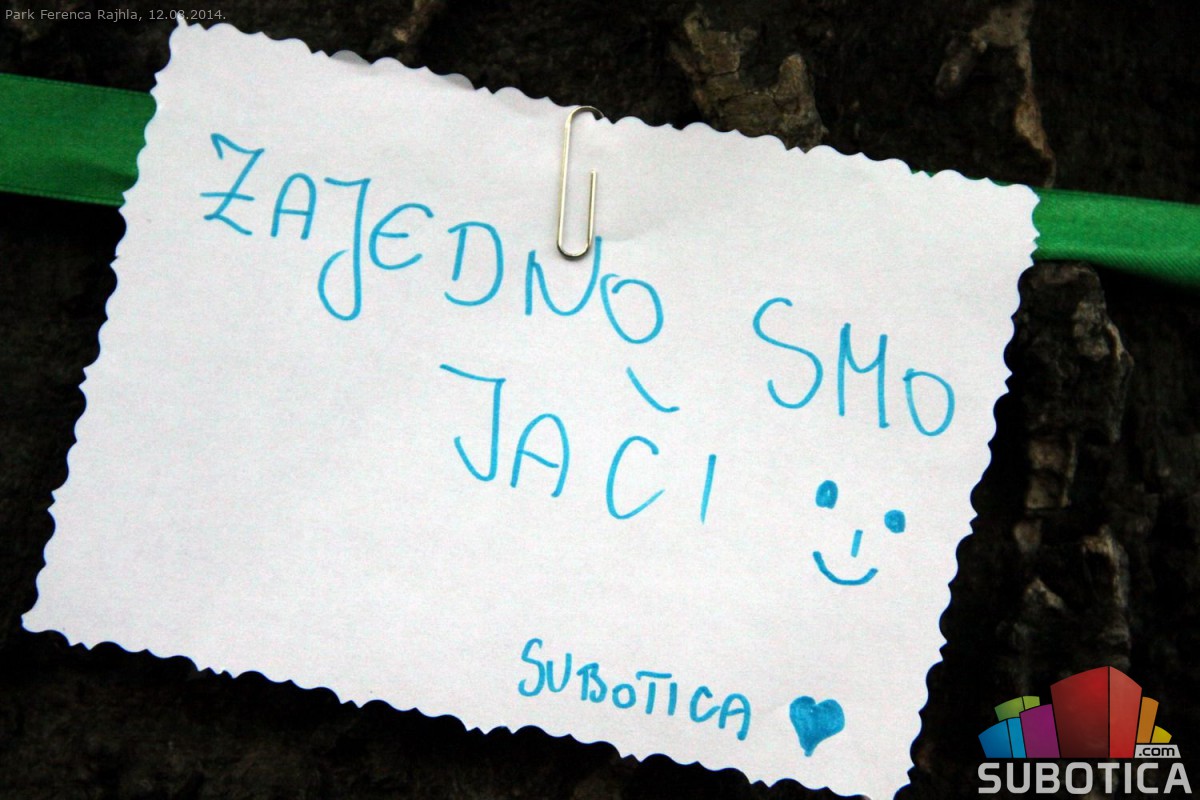 Park Ferenca Rajhla, 12.08.2014.
ZAJEDNO SMO
JAČI
SUBOTICA
.com
SUBOTICA